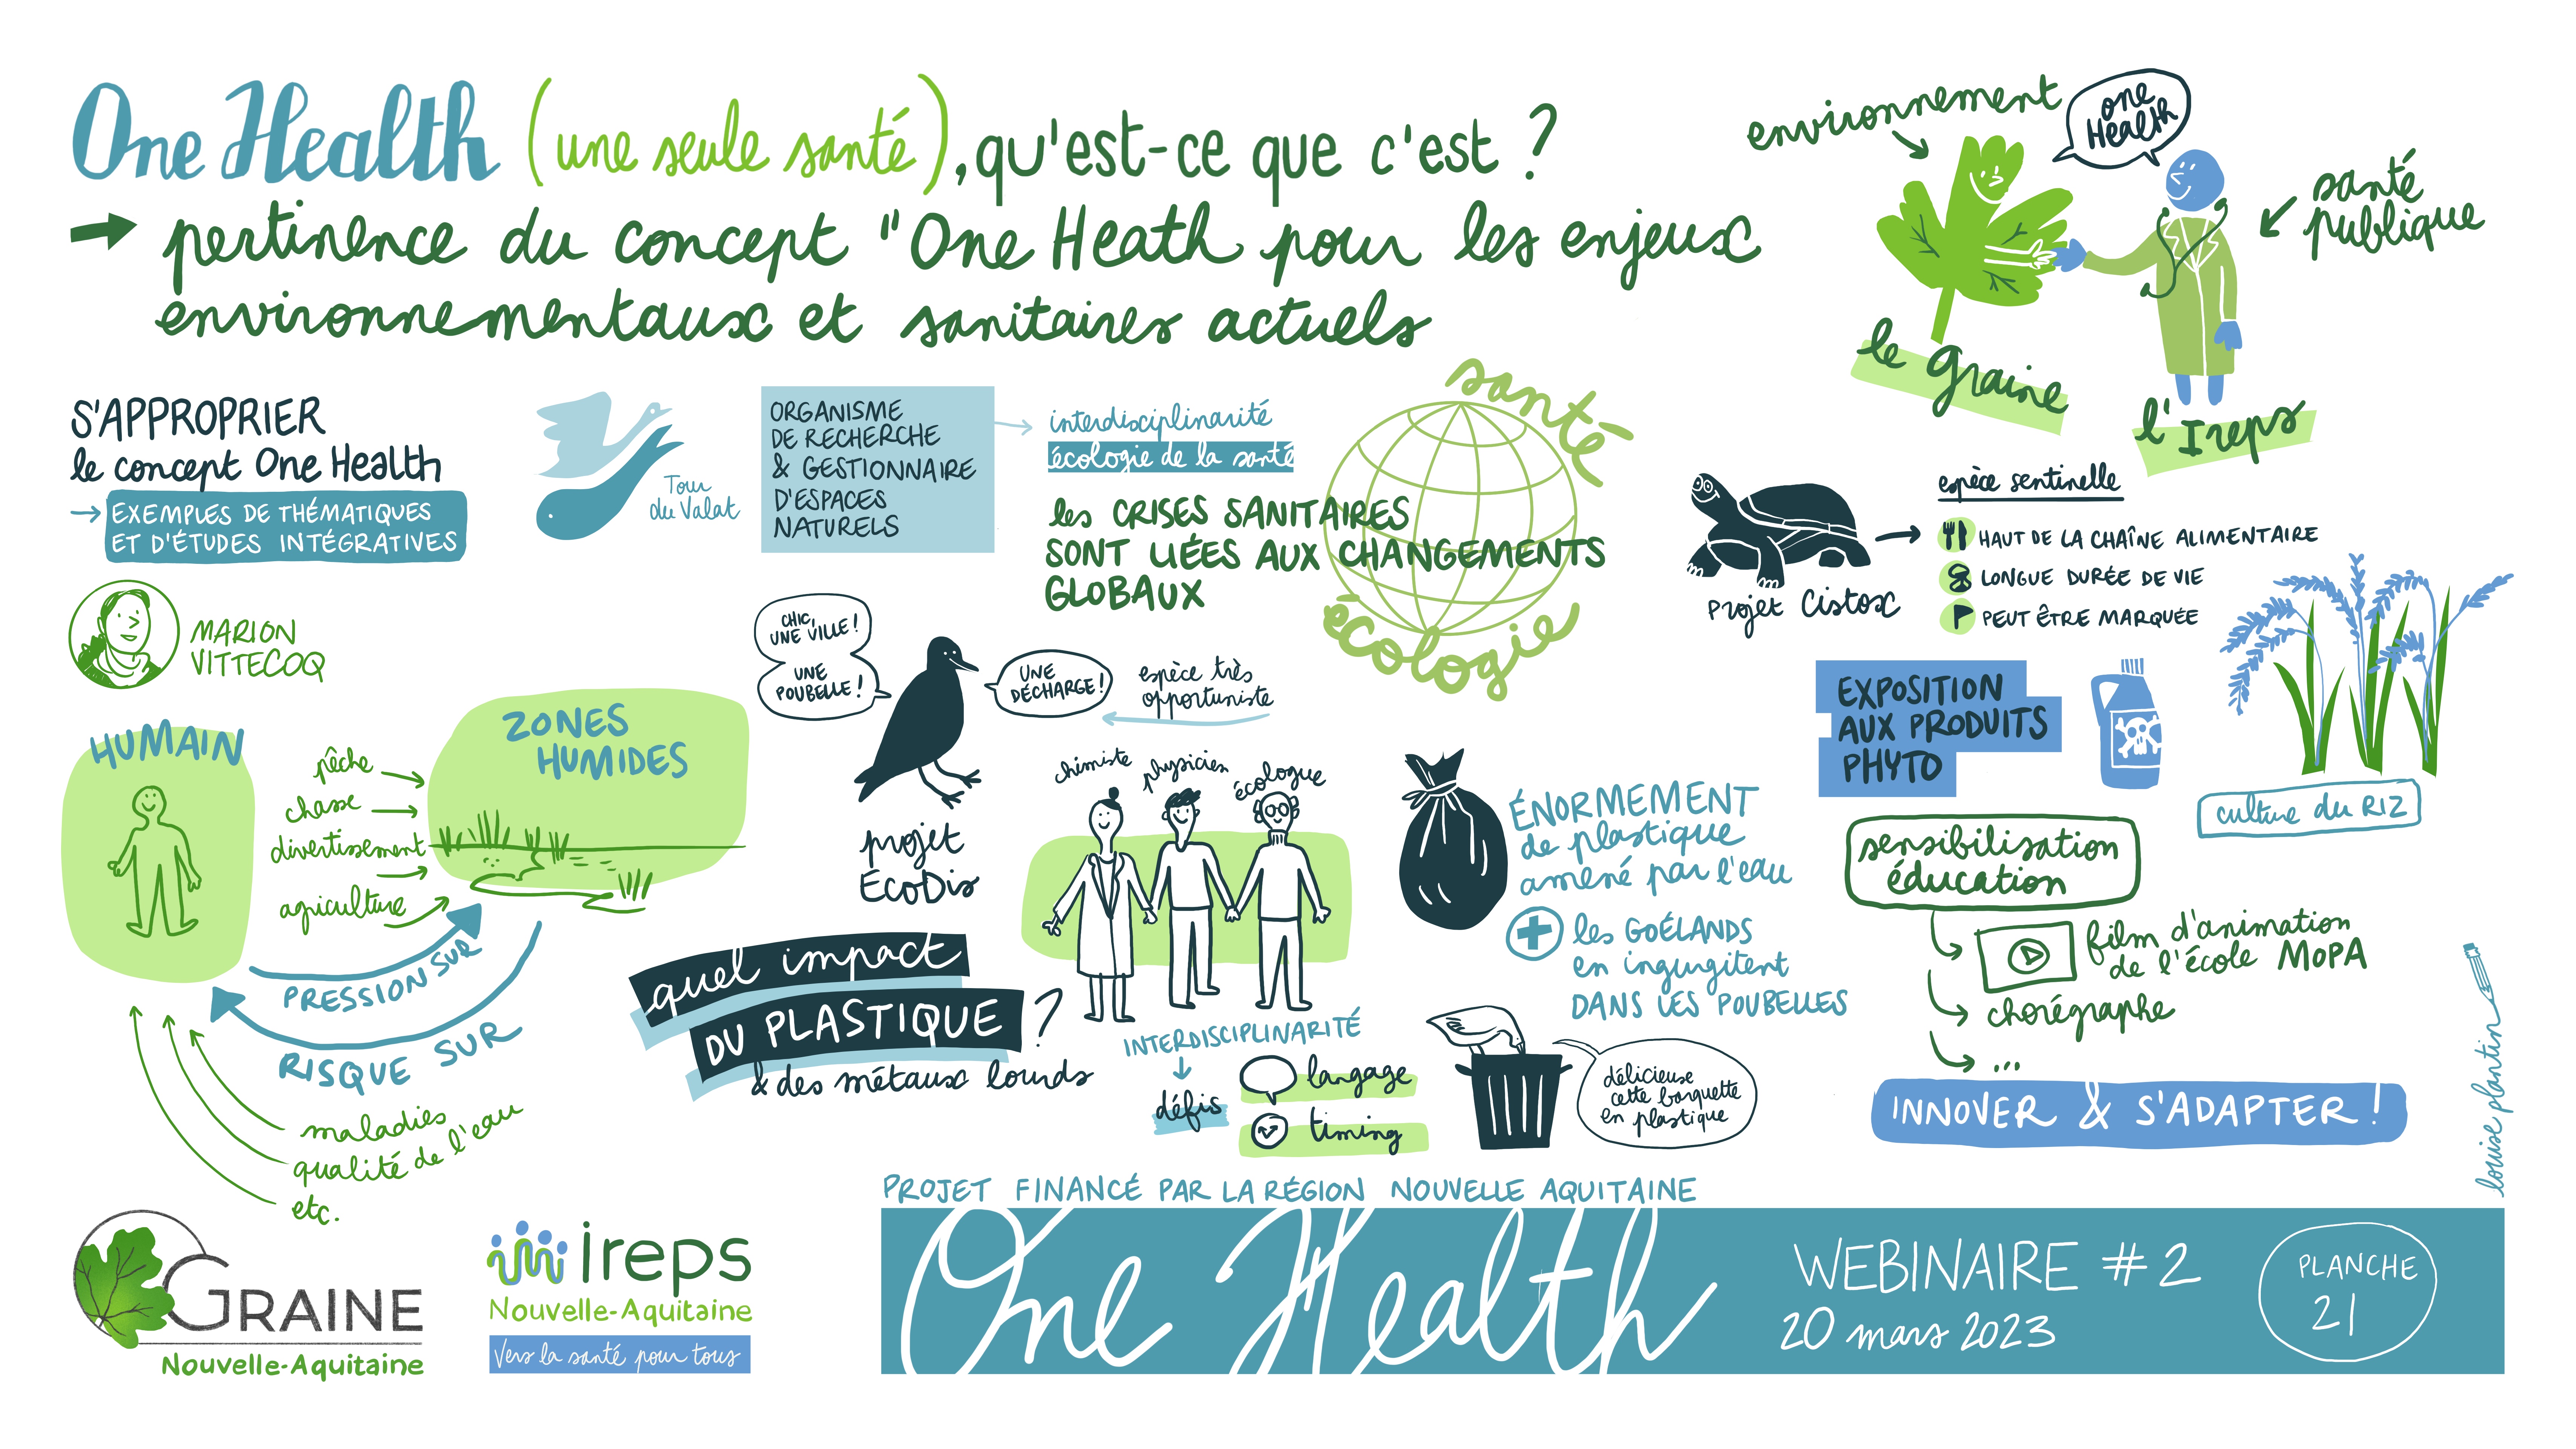 One Health (une seule santé), qu'est-ce que c'est ?
pertinence du concept "One Heath pour les enjeux
environnementaux et sanitaires actuels
environnement
one
Health
santé
publique
le Graine
l'Ireps
S'APPROPRIER
le concept One Health
EXEMPLES DE THÉMATIQUES
ET D'ÉTUDES INTÉGRATIVES
MARION
VITTECOQ
Tour
du Valat
ORGANISME
DE RECHERCHE
& GESTIONNAIRE
D'ESPACES
NATURELS
interdisciplinarité
écologie de la santé
les CRISES SANITAIRES
SONT LIÉES AUX CHANGEMENTS
GLOBAUX
santé
écologie
HUMAIN
pêche
chasse
divertissement
agriculture
ZONES
HUMIDES
PRESSION SUR
RISQUE SUR
maladies
qualité de l'eau
etc.
CHIC,
UNE VILLE !
UNE
POUBELLE !
UNE
DÉCHARGE !
espèce très
opportuniste
projet
EcoDis
quel impact
DU PLASTIQUE ?
& des métaux lourds
chimiste
physicien
écologue
INTERDISCIPLINARITÉ
défis
langage
timing
ÉNORMEMENT
de plastique
amené par l'eau
+ les GOÉLANDS
en ingurgitent
DANS LES POUBELLES
délicieuse
cette barquette
en plastique
Projet Cistox
espèce sentinelle
HAUT DE LA CHAÎNE ALIMENTAIRE
LONGUE DURÉE DE VIE
PEUT ÊTRE MARQUÉE
EXPOSITION
AUX PRODUITS
PHYTO
culture du RIZ
sensibilisation
éducation
film d'animation
de l'école MoPA
chorégraphe
...
INNOVER & S'ADAPTER !
louise plantin
GRAINE
Nouvelle-Aquitaine
ireps
Nouvelle-Aquitaine
Vers la santé pour tous
PROJET FINANCÉ PAR LA RÉGION NOUVELLE AQUITAINE
One Health
WEBINAIRE #2
20 mars 2023
PLANCHE
21